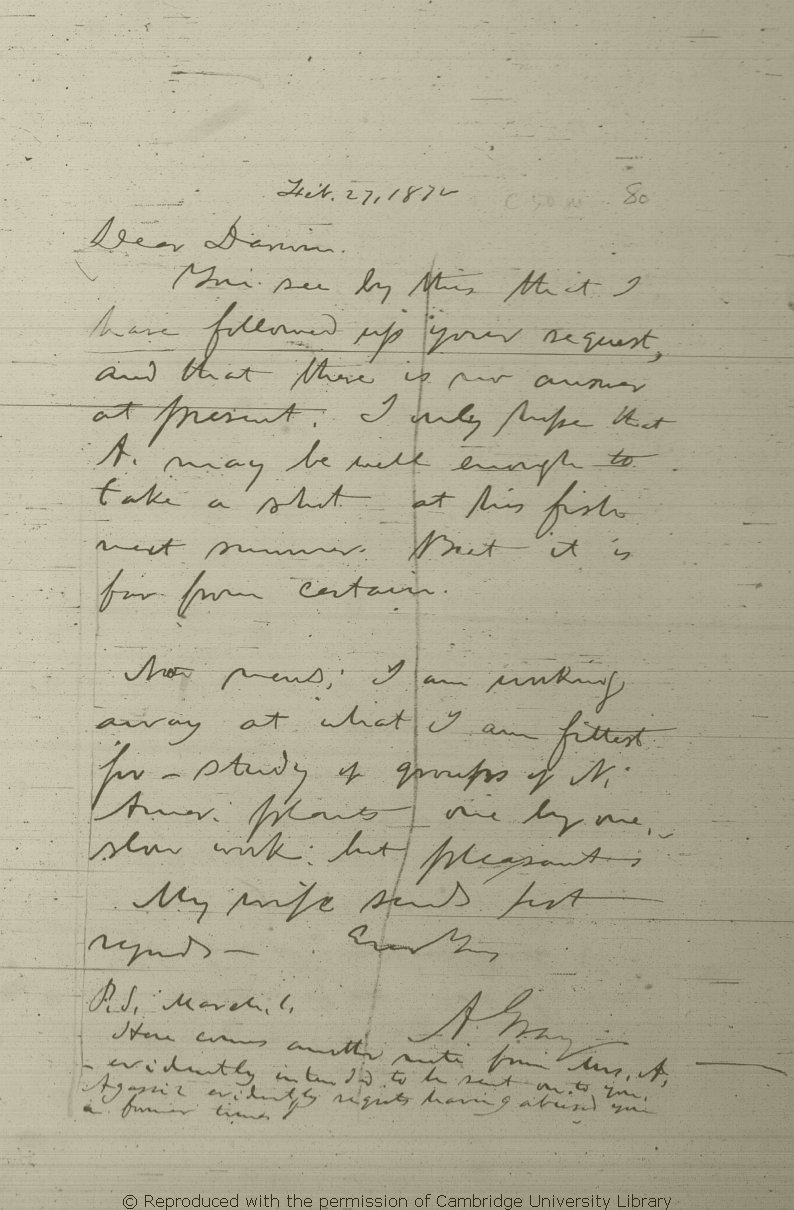 Feb. 27, 1872
80
Dear Darwin.
You see by this that I
have followed up your request,
and that there is no answer
at present. I only hope that
A. may be well enough to
take a shot at his fish
next summer. But it is
far from certain.
I am working
away at what I am fittest
for – study of groups of N.
Amer. plants one by one,
slow work: but pleasant
My wife sends best
regards — Ever Yours
A. Gray
P.S. March. 1.
Here comes another note from Mrs. A.
– evidently intended to be sent on to you.
Agassiz evidently regrets having abused you
in former times
© Reproduced with the permission of Cambridge University Library